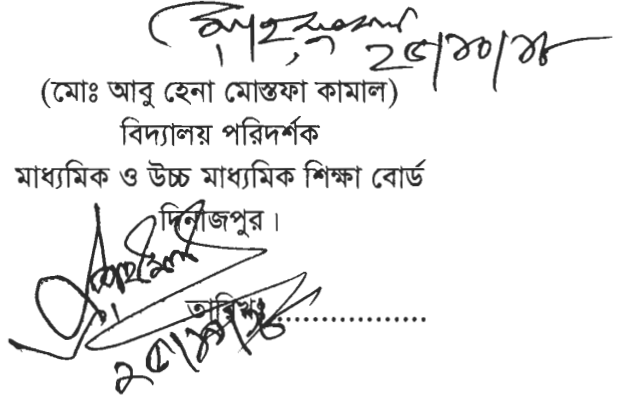 ২৫/১০/১৮
(মোঃ আবু হেনা মোস্তফা কামাল)
বিদ্যালয় পরিদর্শক
মাধ্যমিক ও উচ্চ মাধ্যমিক শিক্ষা বোর্ড
দিনাজপুর।
তারিখঃ....................